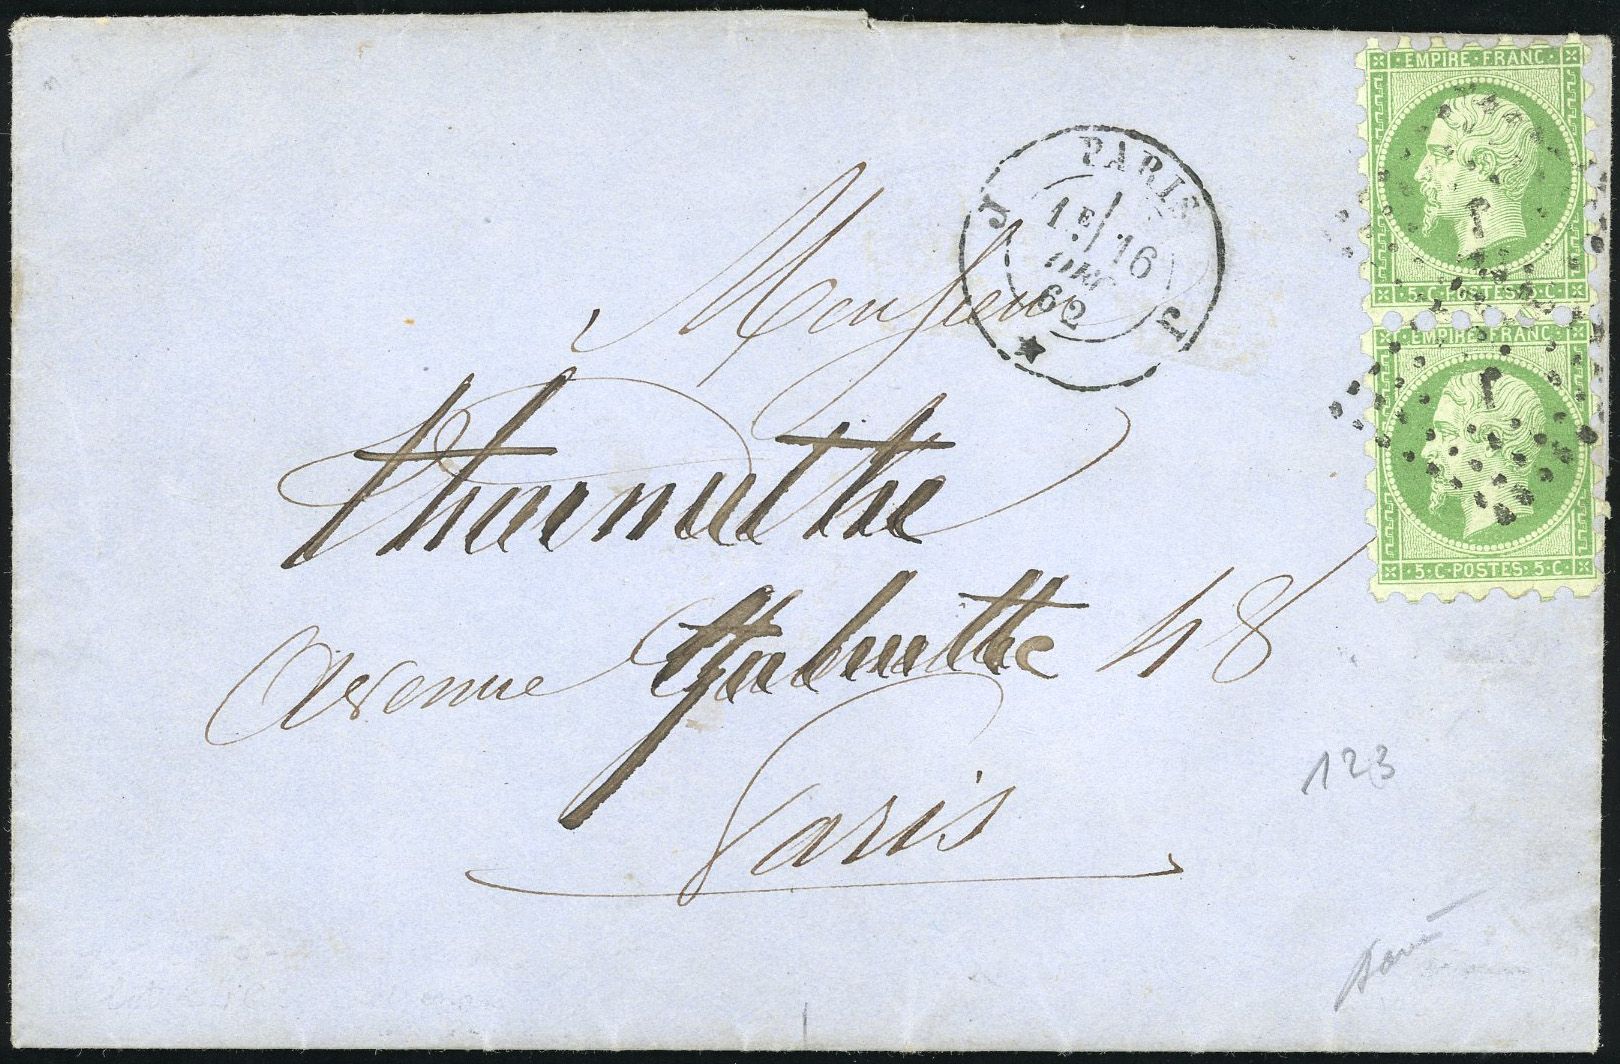 EMPIRE·FRANC·
5·C·POSTES·5·C·
EMPIRE·FRANC·
5·C·POSTES·5·C·
J PARIS J
1E/ 16
DEC
62
J
J
Monsieur
Avenue 48
Paris
123